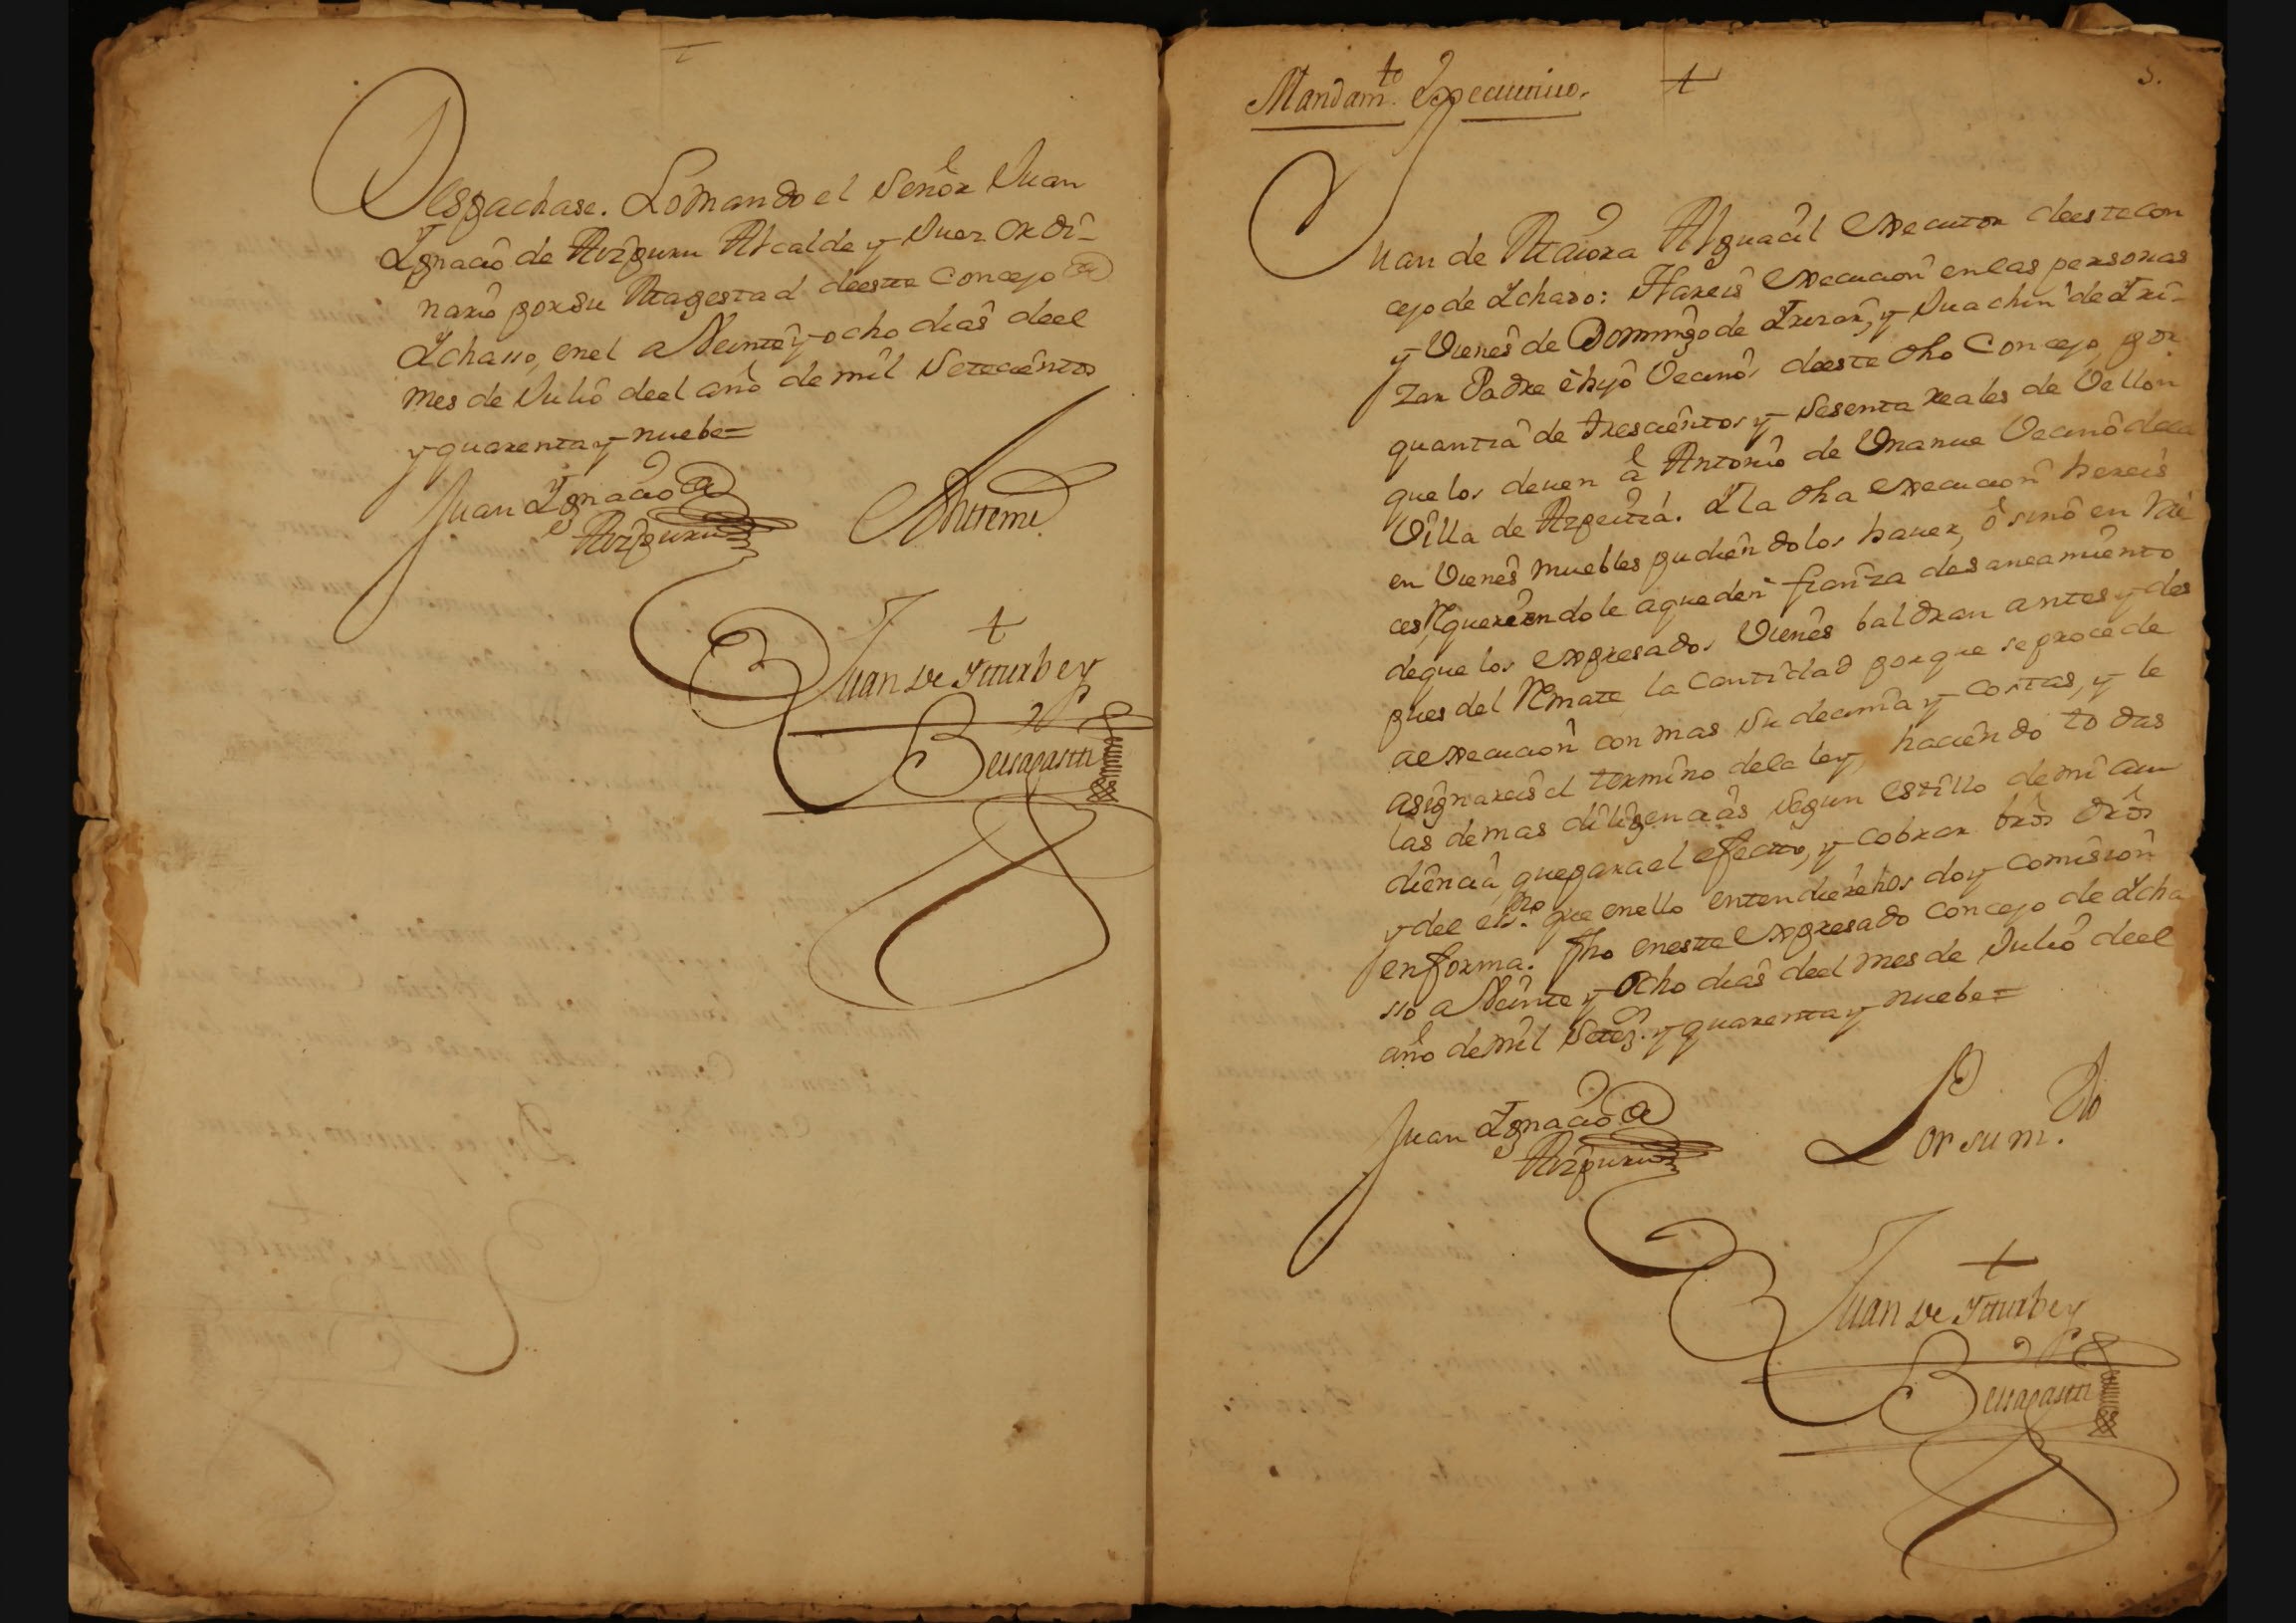 Despachase. Lo mando el Señor Juan
Ygnacio de Aizpuru Alcalde y Juez Ordi-
nario por su Magestad deeste Concejo de
Ychasso, enel a Veinte y ocho dias deel
mes de Julio deel año de mil Setecientos
y quarenta y nuebe=
Juan Ygnacio de
Aizpuru
Antemi
Juan de Yturbey
Beisagasti
Mandamto. Executivo.
5.
Juan de Maiora Alguacil Executor deeste con
cejo de Ychaso: Hareis execucion en las personas
y Vienes de Domingo de Irizar, y Juachin de Iri-
zar Padre è hijo Vecinos deeste dho Concejo, por
quantia de trescientos y sesenta reales de Vellon
que los deven â Antonio de Vnanue Vecino de la
Villa de Azpeitia. Y la dha execucion hareis
en Vienes muebles pudiendolos haver, ô sino en Rai
ces, requeriendole aqueden fianza desaneamiento
deque los expresados Vienes baldran antes y des
pues del Remate la Cantidad porque se procede
a execucion con mas su decima y costas, y le
asignareis el termino dela ley, haciendo todas
las demas diligencias segun estillo de mi au
diencia, que para el efecto, y cobrar bros dros
y del essno. que enello entendiere hos doy comision
en forma. fho eneste expresado Concejo de Ycha
sso a Veinte y Ocho dias deel mes de Julio deel
año de mil Setezs. y quarenta y nuebe=
Juan Ygnacio de
Aizpuru
Por su mdo.
Juan de Yturbey
Beisagasti